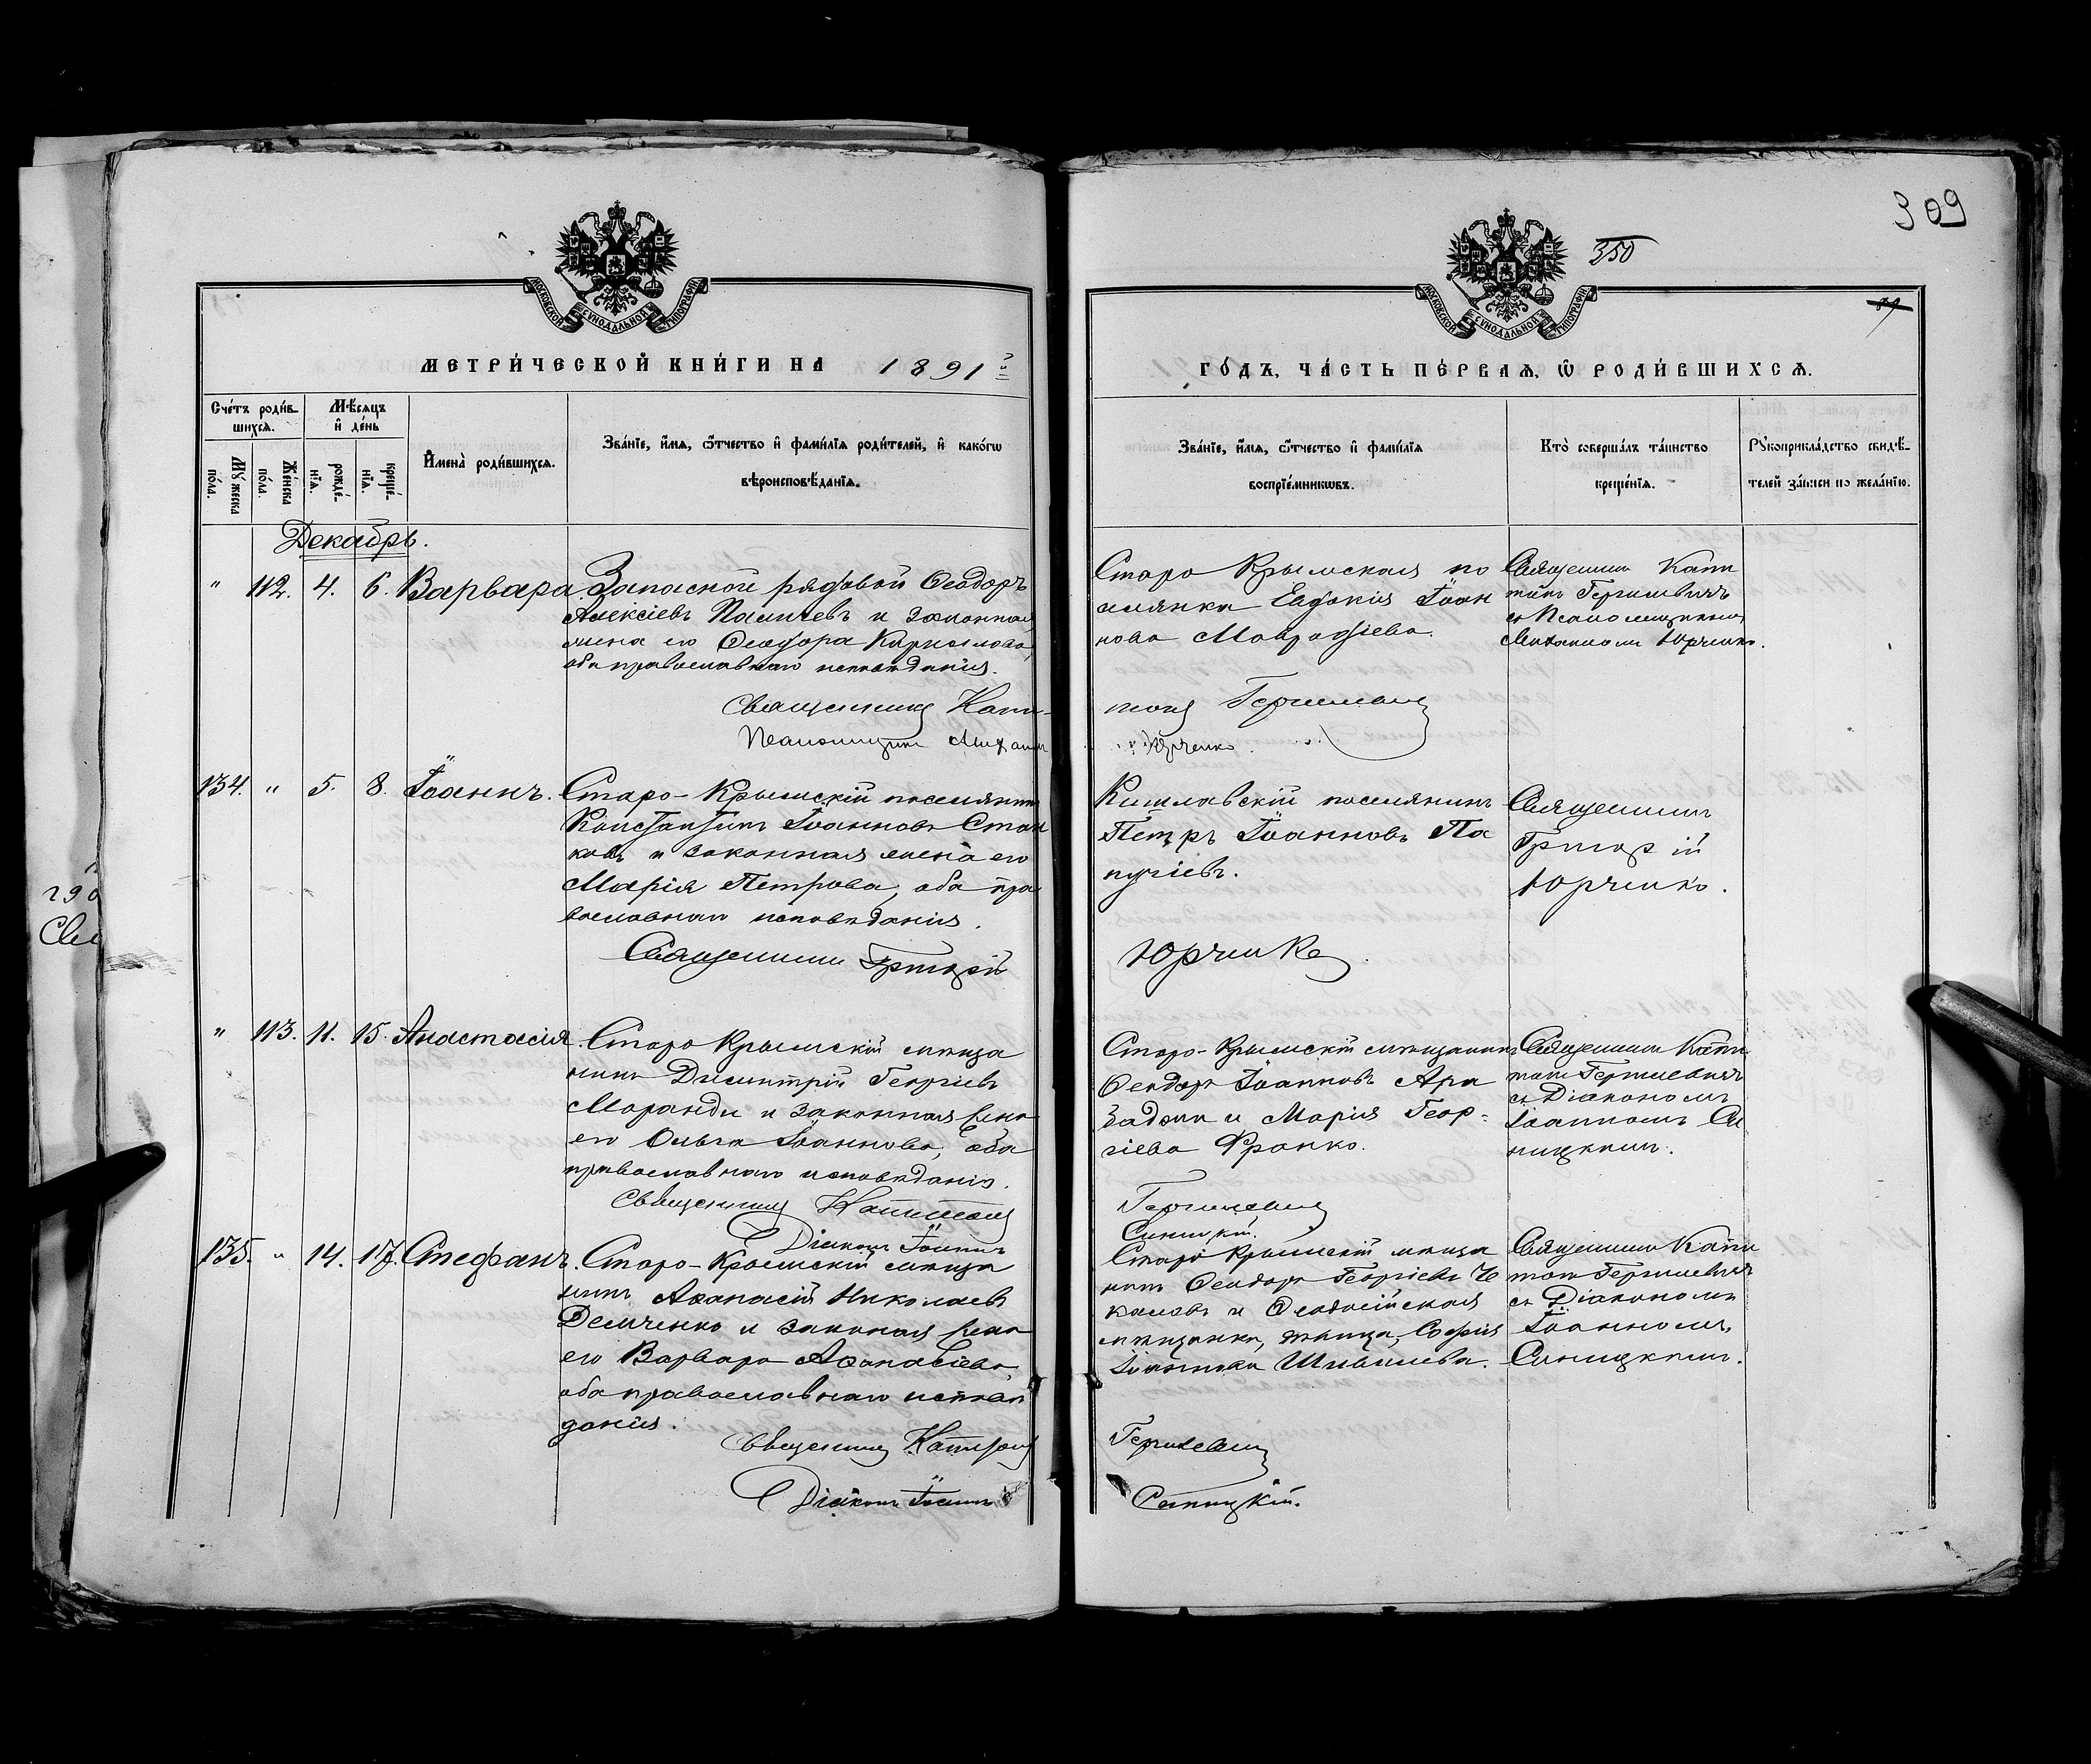 309
350
МОСКОВСКОЙ СУНОДАЛЬНОЙ ТИПОГРАФІИ
МОСКОВСКОЙ СУНОДАЛЬНОЙ ТИПОГРАФІИ
МЕТРИ́ЧЕСКОЙ КНИ́ГИ НА 1891й
ГО́ДЪ, ЧА́СТЬ ПЕ́РВАѦ, Ѡ҆ РОДИ́ВШИХСѦ.
Сче́тъ роди́в-
шихсѧ.
Мѣ́сѧцъ
и҆ де́нь
Му́жеска
по́ла.
Же́нска
по́ла.
рожде́-
нїѧ.
креще́-
нїѧ.
И҆мена̀ роди́вшихсѧ.
Зва́нїе, и҆́мѧ, ѻ҆́тчество и҆ фами́лїѧ роди́телей, и҆ како́гѡ
вѣроисповѣ́данїѧ.
Зва́нїе, и҆́мѧ, ѻ҆́тчество и҆ фами́лїѧ
воспрїе́мникѡвъ.
Кто̀ соверша́лъ та́инство
креще́нїѧ.
Рꙋкоприкла́дство свидѣ́-
телей за́писи по жела́нїю.
Декабрь.
" 112. 4. 6. Варвара.
Запасной рядовой Ѳеодоръ
Алексіевъ и законная
жена его Ѳеодора Кириллова,
оба православнаго исповѣданія.
Священникъ Капи-
Псаломщикъ Михаилъ
Старо Крымская по
селянка Евдокія Іоан
нова Мавродіева.
тонъ Гергилевичъ
Юрченко
Священникъ Капи
тонъ Гергилевичъ
съ Псаломщикомъ
Михаиломъ Юрченко.
134. " 5. 8. Іоаннъ.
Старо-Крымскій поселянинъ
Константинъ Іоанновъ Стан
ковъ и законная жена его
Марія Петрова, оба пра
вославнаго исповѣданія.
Священникъ Григорій
Кишлавскій поселянинъ
Петръ Іоанновъ Па
пучіевъ.
Юрченко
Священникъ
Григорій
Юрченко.
" 113. 11. 15. Анастасія.
Старо Крымскій мѣща
нинъ Димитрій Георгіевъ
Моранди и законная жена
его Ольга Іоаннова, оба
православнаго исповѣданія.
Священникъ Капитонъ
Діаконъ Іоаннъ
Старо-Крымскій мѣщанинъ
Ѳеодоръ Іоанновъ Ара
баджи и Марія Геор-
гіева Франко.
Гергилевичъ
Синицкій.
Священникъ Капи
тонъ Гергилевичъ
съ Діакономъ
Іоанномъ Си
ницкимъ.
135. " 14. 17. Стефанъ.
Старо-Крымскій мѣща
нинъ Аѳанасій Николаевъ
Демченко и законная жена
его Варвара Аѳанасіева,
оба православнаго исповѣ
данія.
Священникъ Капитонъ
Діаконъ Іоаннъ
Старо Крымскій мѣща
нинъ Ѳеодоръ Георгіевъ Че
камовъ и Ѳеодосійская
мѣщанка, дѣвица, Софія
Іоаннова
Гергилевичъ
Синицкій.
Священникъ Капи
тонъ Гергилевичъ
съ Діакономъ
Іоанномъ
Синицкимъ.